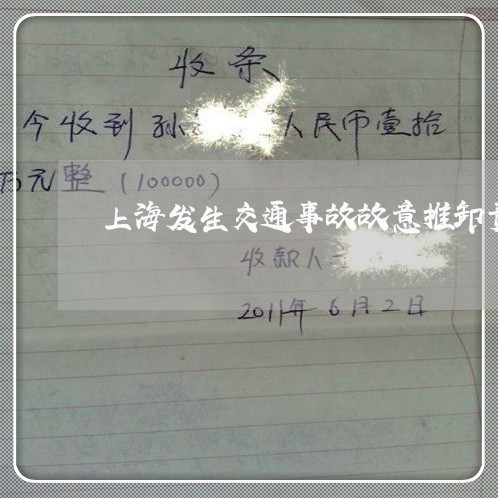 收条
今收到孙 人民币壹拾
万元整(100000)
上海发生交通事故故意推卸
收款人
2011年6月2日